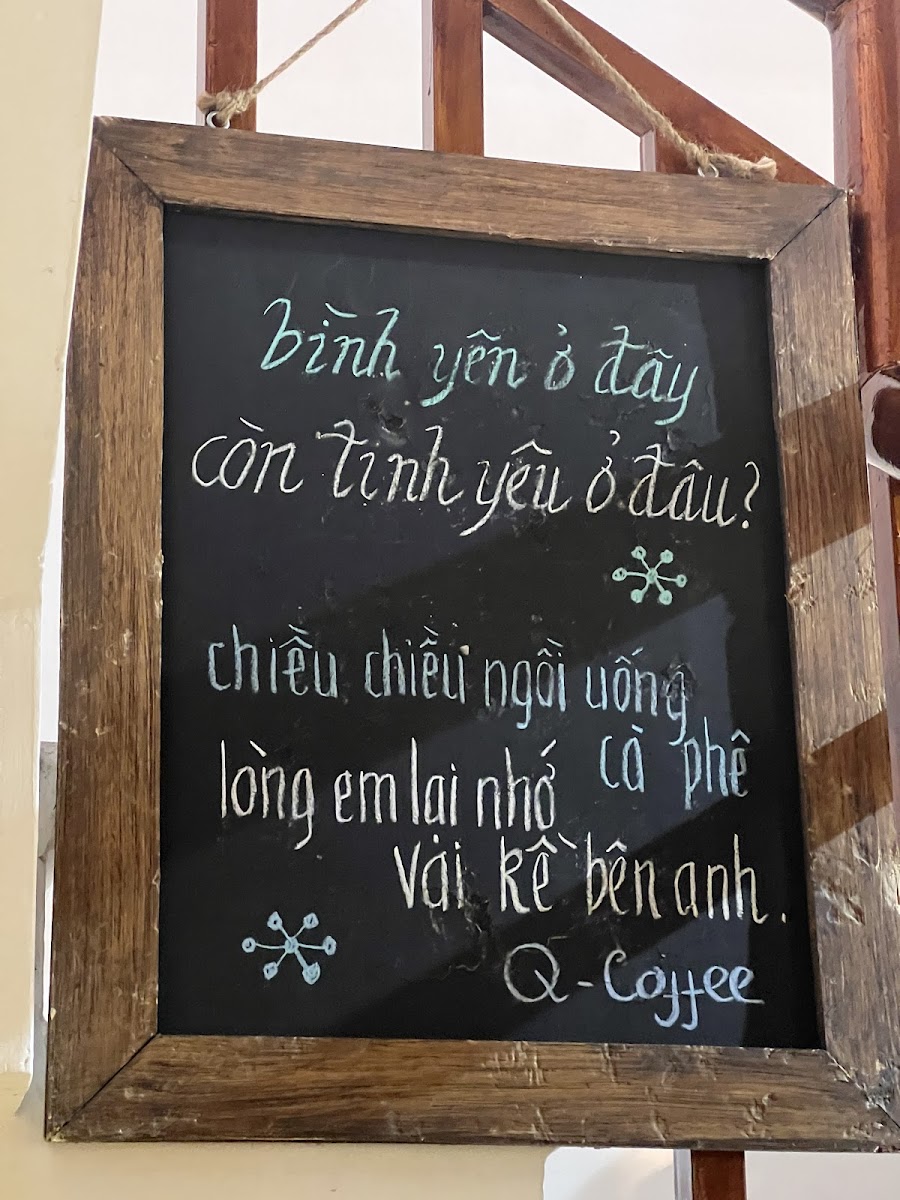 bình yên ở đây
còn tình yêu ở đâu?
chiều chiều ngồi uống
cà phê
lòng em lại nhớ
vai kề bên anh.
Q-Coffee